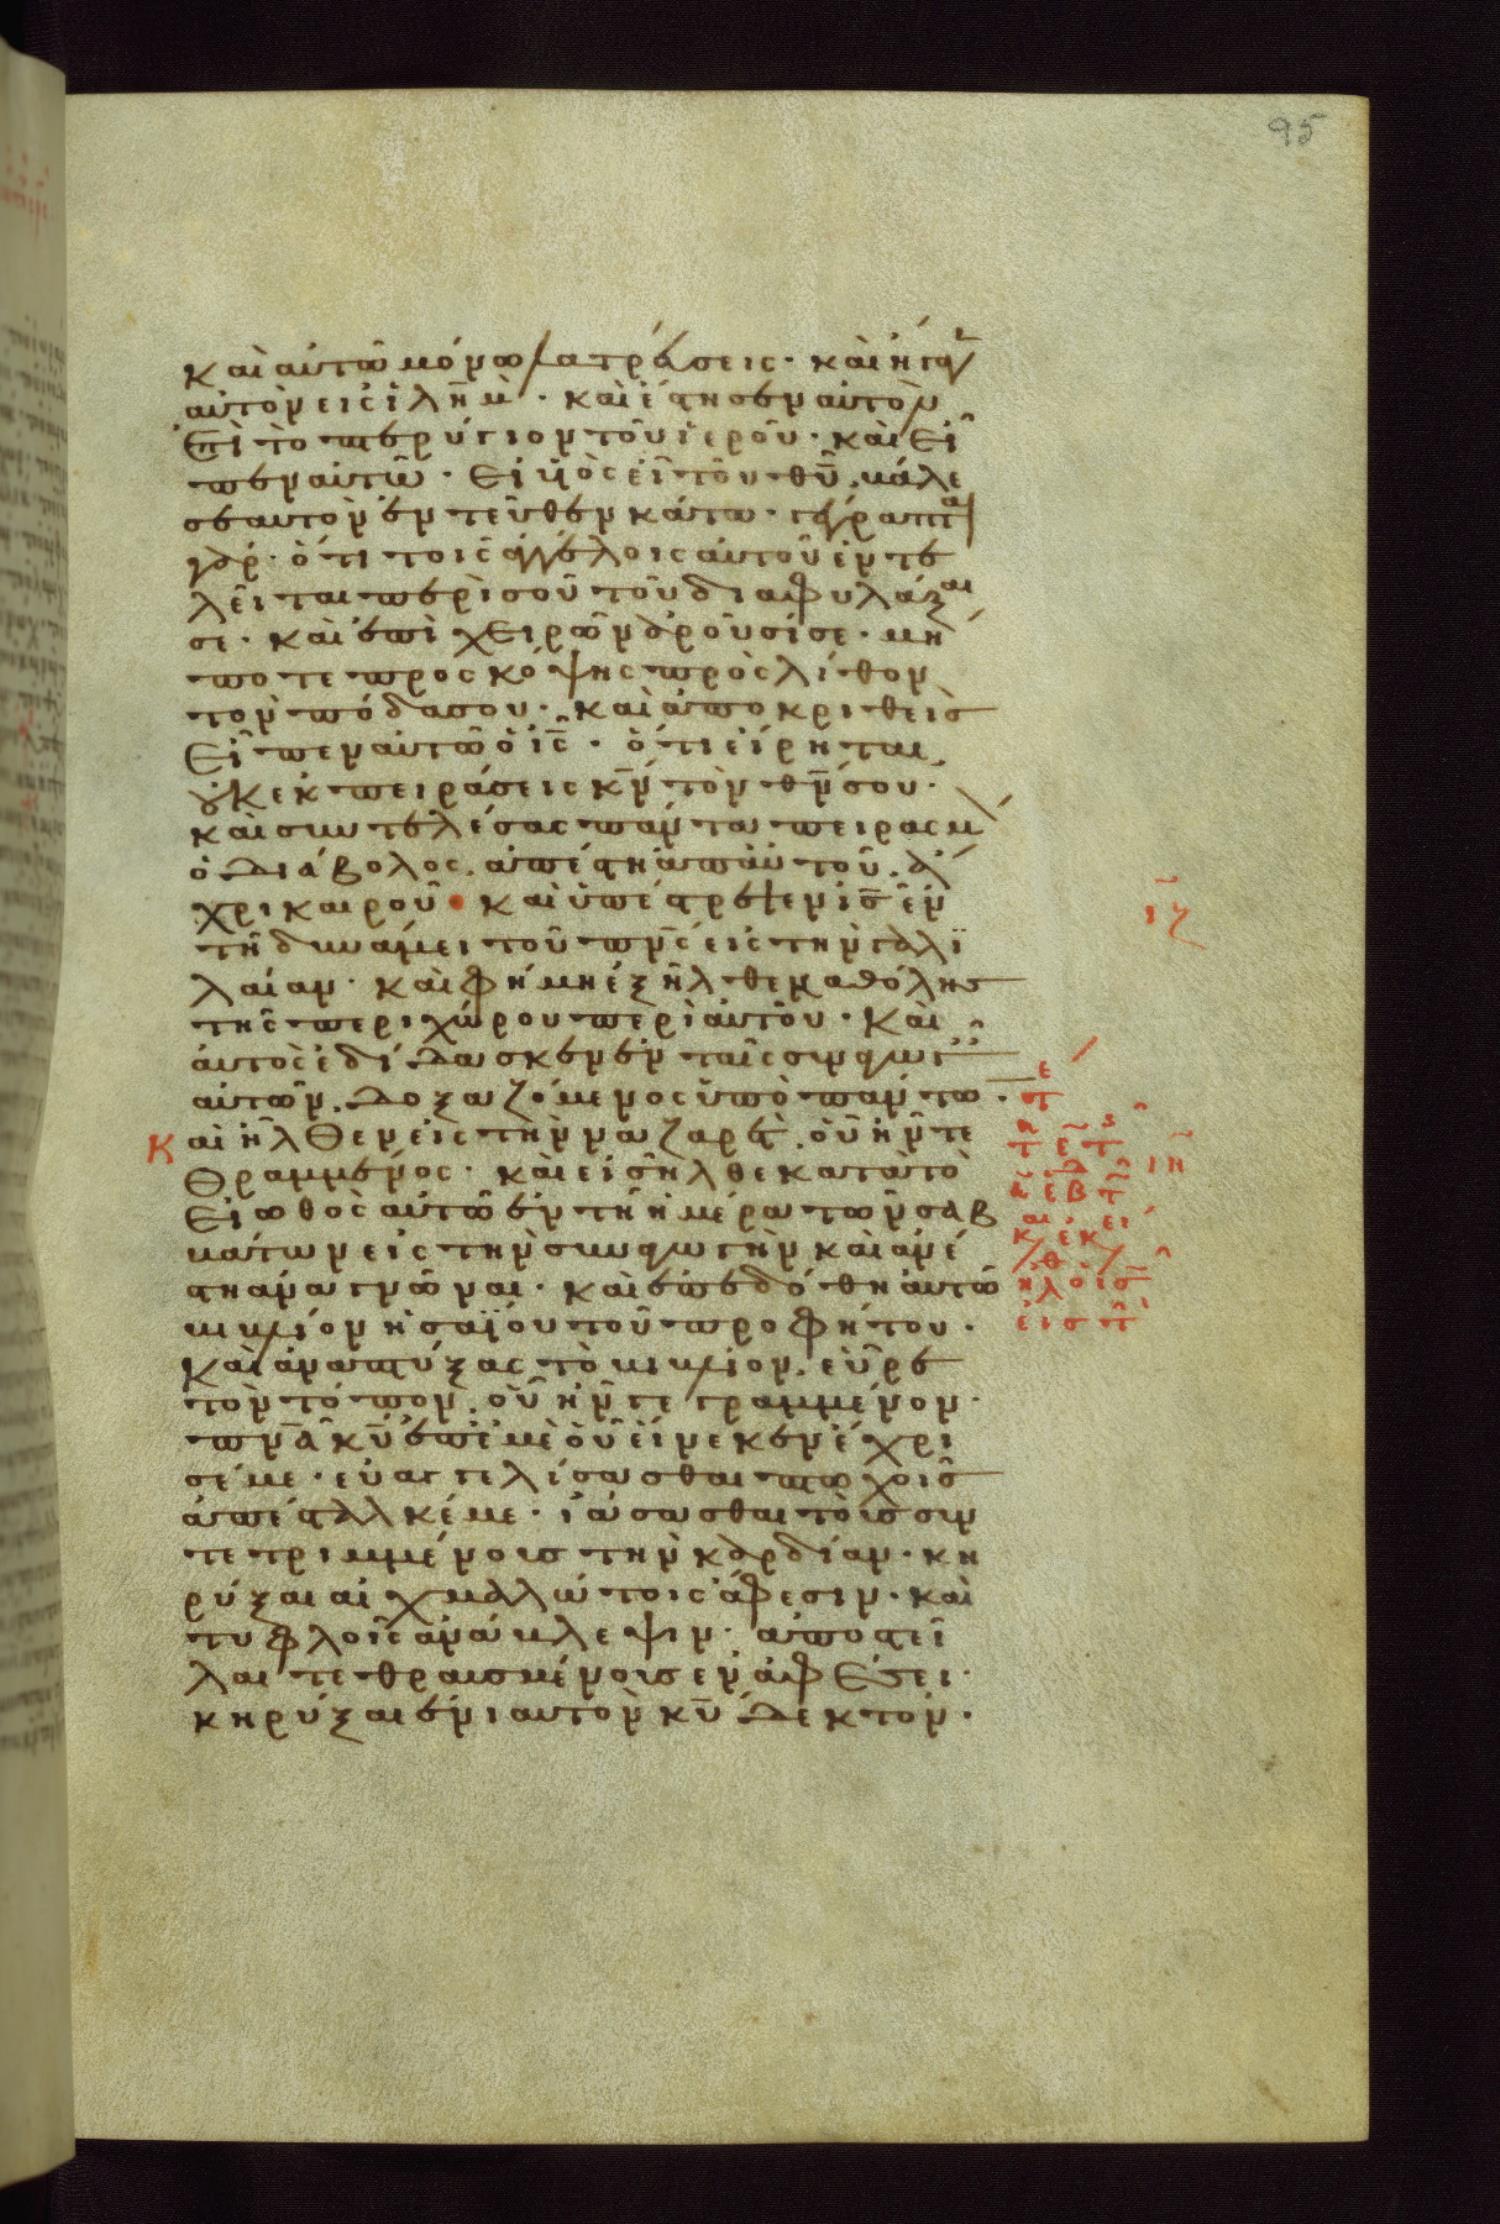 95
καὶ αὐτῶ μόνω λατρεύσεις· καὶ ἤγαγ
αὐτὸν εἰς ἰλη̅μ̀· καὶ ἔστησεν αὐτὸν
ἐπὶ τὸ πτερύγιον τοῦ ἱεροῦ· καὶ εἶ
πεν αὐτῶ· εἰ υἱὸς εἶ τοῦ θυ̅, βάλε
σεαυτὸν ἐντεῦθεν κάτω· γέγραπται
γάρ· ὅτι τοῖς ἀγγέλοις αὐτοῦ ἐντε
λεῖται περὶ σοῦ τοῦ διαφυλάξαι
σε· καὶ ἐπὶ χειρῶν ἀροῦσί σε· μή
ποτε προσκόψης πρὸς λίθον
τὸν πόδα σου· καὶ ἀποκριθεὶς
εἶπεν αὐτῶ ὁ ις̅· ὅτι εἴρηται,
οὐκ ἐκπειράσεις κν̅ τὸν θν̅ σου·
καὶ συντελέσας πάντα πειρασμ
ὁ διάβολος, ἀπέστη ἀπ' αὐτοῦ, ἄ
χρι καιροῦ· καὶ ὑπέστρεψεν ὁ ις̅ ἐν
τῆ δυνάμει τοῦ πνς̅ εἰς τὴν γαλι
λαίαν· καὶ φήμη ἐξῆλθεν καθόλης
τῆς περιχώρου περὶ αὐτοῦ· καὶ
αὐτὸς ἐδίδασκεν ἐν ταῖς συναγωγ
αὐτῶν, δοξαζόμενος ὑπὸ πάντω·
Καὶ ἦλθεν εἰς τὴν ναζαρέτ, οὗ ἦν τε
θραμμένος· καὶ εἰσῆλθε κατὰ τὸ
εἰωθὸς αὐτῶ ἐν τῆ ἡμέρα τῶν σαβ
βάτων εἰς τὴν συναγωγὴν καὶ ἀνέ
στη ἀναγνῶναι· καὶ ἐπεδόθη αὐτῶ
βιβλίον ἡσαΐου τοῦ προφήτου·
καὶ ἀναπτύξας τὸ βιβλίον, εὗρε
τὸν τόπον, οὗ ἦν γεγραμμένον·
πνα̅ κυ̅ ἐπ' ἐμὲ οὗ εἵνεκεν ἔχρι
σέ με· εὐαγγελίσασθαι πτωχοῖς
ἀπέσταλκέ με· ἰάσασθαι τοὺς συν
τετριμμένους τὴν καρδίαν· κη
ρύξαι αἰχμαλώτοις ἄφεσιν· καὶ
τυφλοῖς ἀνάβλεψιν· ἀποστεῖ
λαι τεθραυσμένους ἐν ἀφέσει·
κηρύξαι ἐνιαυτὸν κυ̅ δεκτόν·
ιζ
ιη